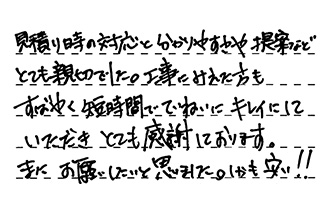 見積り時の対応と分かりやすさや提案など
とても親切でした。工事にみえた方も
すばやく短時間でていねいにキレイにして
いただきとても感謝しております。
またお願いしたいと思いました。しかも安い!!